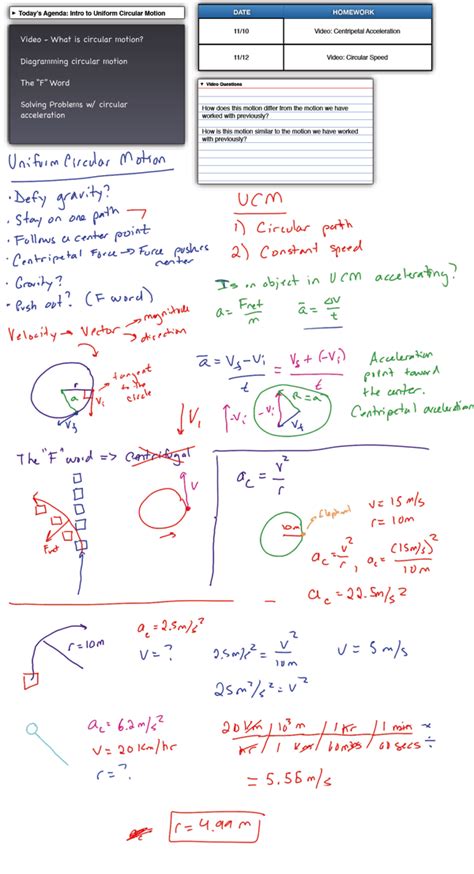 ► Today's Agenda: Intro to Uniform Circular Motion
Video - What is circular motion?
Diagramming circular motion
The "F" Word
Solving Problems w/ circular
acceleration
DATE HOMEWORK
11/10 Video: Centripetal Acceleration
11/12 Video: Circular Speed
▼ Video Questions
How does this motion differ from the motion we have
worked with previously?
How is this motion similar to the motion we have worked
with previously?
Uniform Circular Motion
• Defy gravity?
• Stay on one path
• Follows a center point
• Centripetal Force → Force pushes
center
• Gravity?
• Push out? (F word)
Velocity → Vector → magnitude
→ direction
UCM
1) Circular path
2) Constant speed
Is an object in UCM accelerating?
a = Fnet/m a̅ = ΔV/t
r
a
Vi
Vf
tangent
to the
circle
a̅ = Vf - Vi / t = Vf + (-Vi) / t
Acceleration
point toward
the center.
Centripetal acceleration
Vi
-Vi
-Vi
R = a
Vf
The "F" word => Centrifugal
Fnet
V
ac = v²/r
10m
Elephant
V = 15 m/s
r = 10m
ac = v²/r, ac = (15m/s)²/10m
ac = 22.5m/s²
r = 10m
ac = 2.5m/s²
V = ?
2.5m/s² = v²/10m
V = 5 m/s
25m²/s² = v²
ac = 6.2m/s²
V = 20 km/hr
r = ?
20 km / 10³ m / 1 hr / 1 min ×
hr / 1 km / 60 mins / 60 secs ÷
= 5.56 m/s
r = 4.99 m